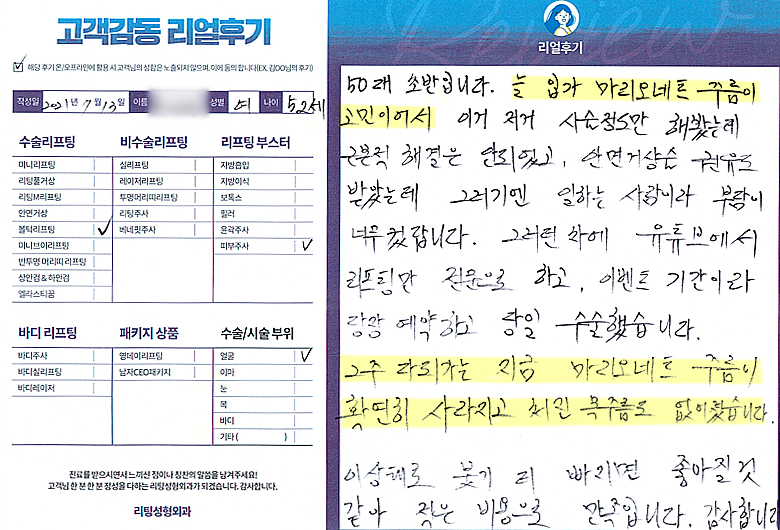 고객감동 리얼후기
해당 후기 온/오프라인에 활용 시 고객님의 성함은 노출되지 않으며, 이에 동의 합니다(EX. 김OO님의 후기)
작성일 2021년 7월 13일 이름 성별 여 나이 52세
수술리프팅
미니리프팅
리팅풀거상
리팅M리프팅
안면거상
볼턱리프팅
미니브이리프팅
반투명 머리띠 리프팅
상안검 & 하안검
엘라스티꿈
비수술리프팅
실리프팅
레이저리프팅
투명머리띠리프팅
리팅주사
베네핏주사
리프팅 부스터
지방흡입
지방이식
보톡스
필러
윤곽주사
피부주사
바디 리프팅
바디주사
바디실리프팅
바디레이저
패키지 상품
영데이리프팅
남자CEO패키지
수술/시술 부위
얼굴
이마
눈
목
바디
기타( )
진료를 받으시면서 느끼신 점이나 칭찬의 말씀을 남겨주세요!
고객님 한 분 한 분 정성을 다하는 리팅성형외과가 되겠습니다. 감사합니다.
리팅성형외과
Review
리얼후기
50대 초반입니다. 늘 입가 마리오네트 주름이
고민이어서 이거 저거 시술정도만 해봤는데
근본적 해결은 안되었고, 안면거상술 권유도
받았는데 그러기엔 일하는 사람이라 부담이
너무 컸답니다. 그러던 차에 유튜브에서
리프팅만 전문으로 하고, 이벤트 기간이라
당장 예약하고 당일 수술했습니다.
2주 다되가는 지금 마리오네트 주름이
확연히 사라지고 처진 목주름도 없어졌습니다.
이상태로 붓기 더 빠지면 좋아질 것
같아 적은 비용으로 만족입니다. 감사합니다